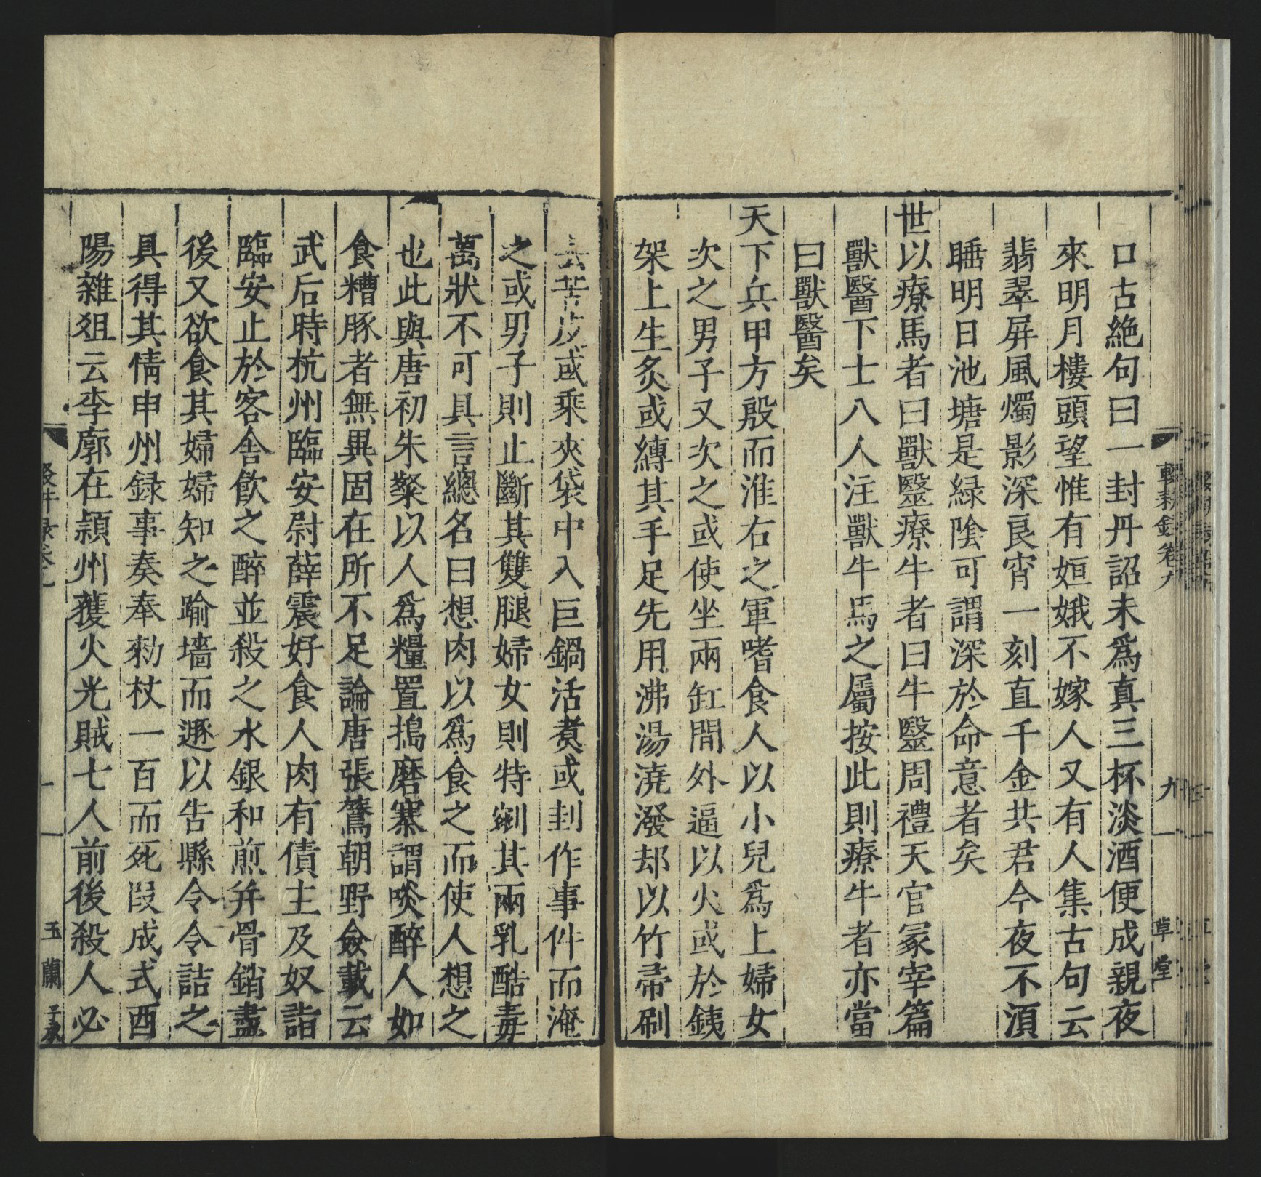 口古絶句曰一封丹詔未爲真三杯淡酒便成親夜
來明月樓頭望惟有姮娥不嫁人又有人集古句云
翡翠屏風燭影深良宵一刻直千金共君今夜不須
睡明日池塘是緑陰可謂深於命意者矣
世以療馬者曰獸毉療牛者曰牛毉周禮天官冢宰篇
獸醫下士八人注獸牛馬之屬按此則療牛者亦當
曰獸醫矣
天下兵甲方殷而淮右之軍嗜食人以小兒爲上婦女
次之男子又次之或使坐兩缸間外逼以火或於鐵
架上生炙或縛其手足先用沸湯澆潑却以竹帚刷
去苦皮或乘夾袋中入巨鍋活煑或刲作事件而淹
之或男子則止斷其雙腿婦女則特剜其兩乳酷毒
萬狀不可具言總名曰想肉以爲食之而使人想之
也此與唐初朱粲以人爲糧置搗磨寨謂啖醉人如
食糟豚者無異固在所不足論唐張鷟朝野僉載云
武后時杭州臨安尉薛震好食人肉有債主及奴詣
臨安止於客舎飲之醉並殺之水銀和煎并骨銷盡
後又欲食其婦婦知之踰墻而遯以告縣令令詰之
具得其情申州録事奏奉勑杖一百而死段成式酉
陽雜俎云李廓在頴州獲火光賊七人前後殺人必
輟耕錄卷九
九
草堂
玉蘭